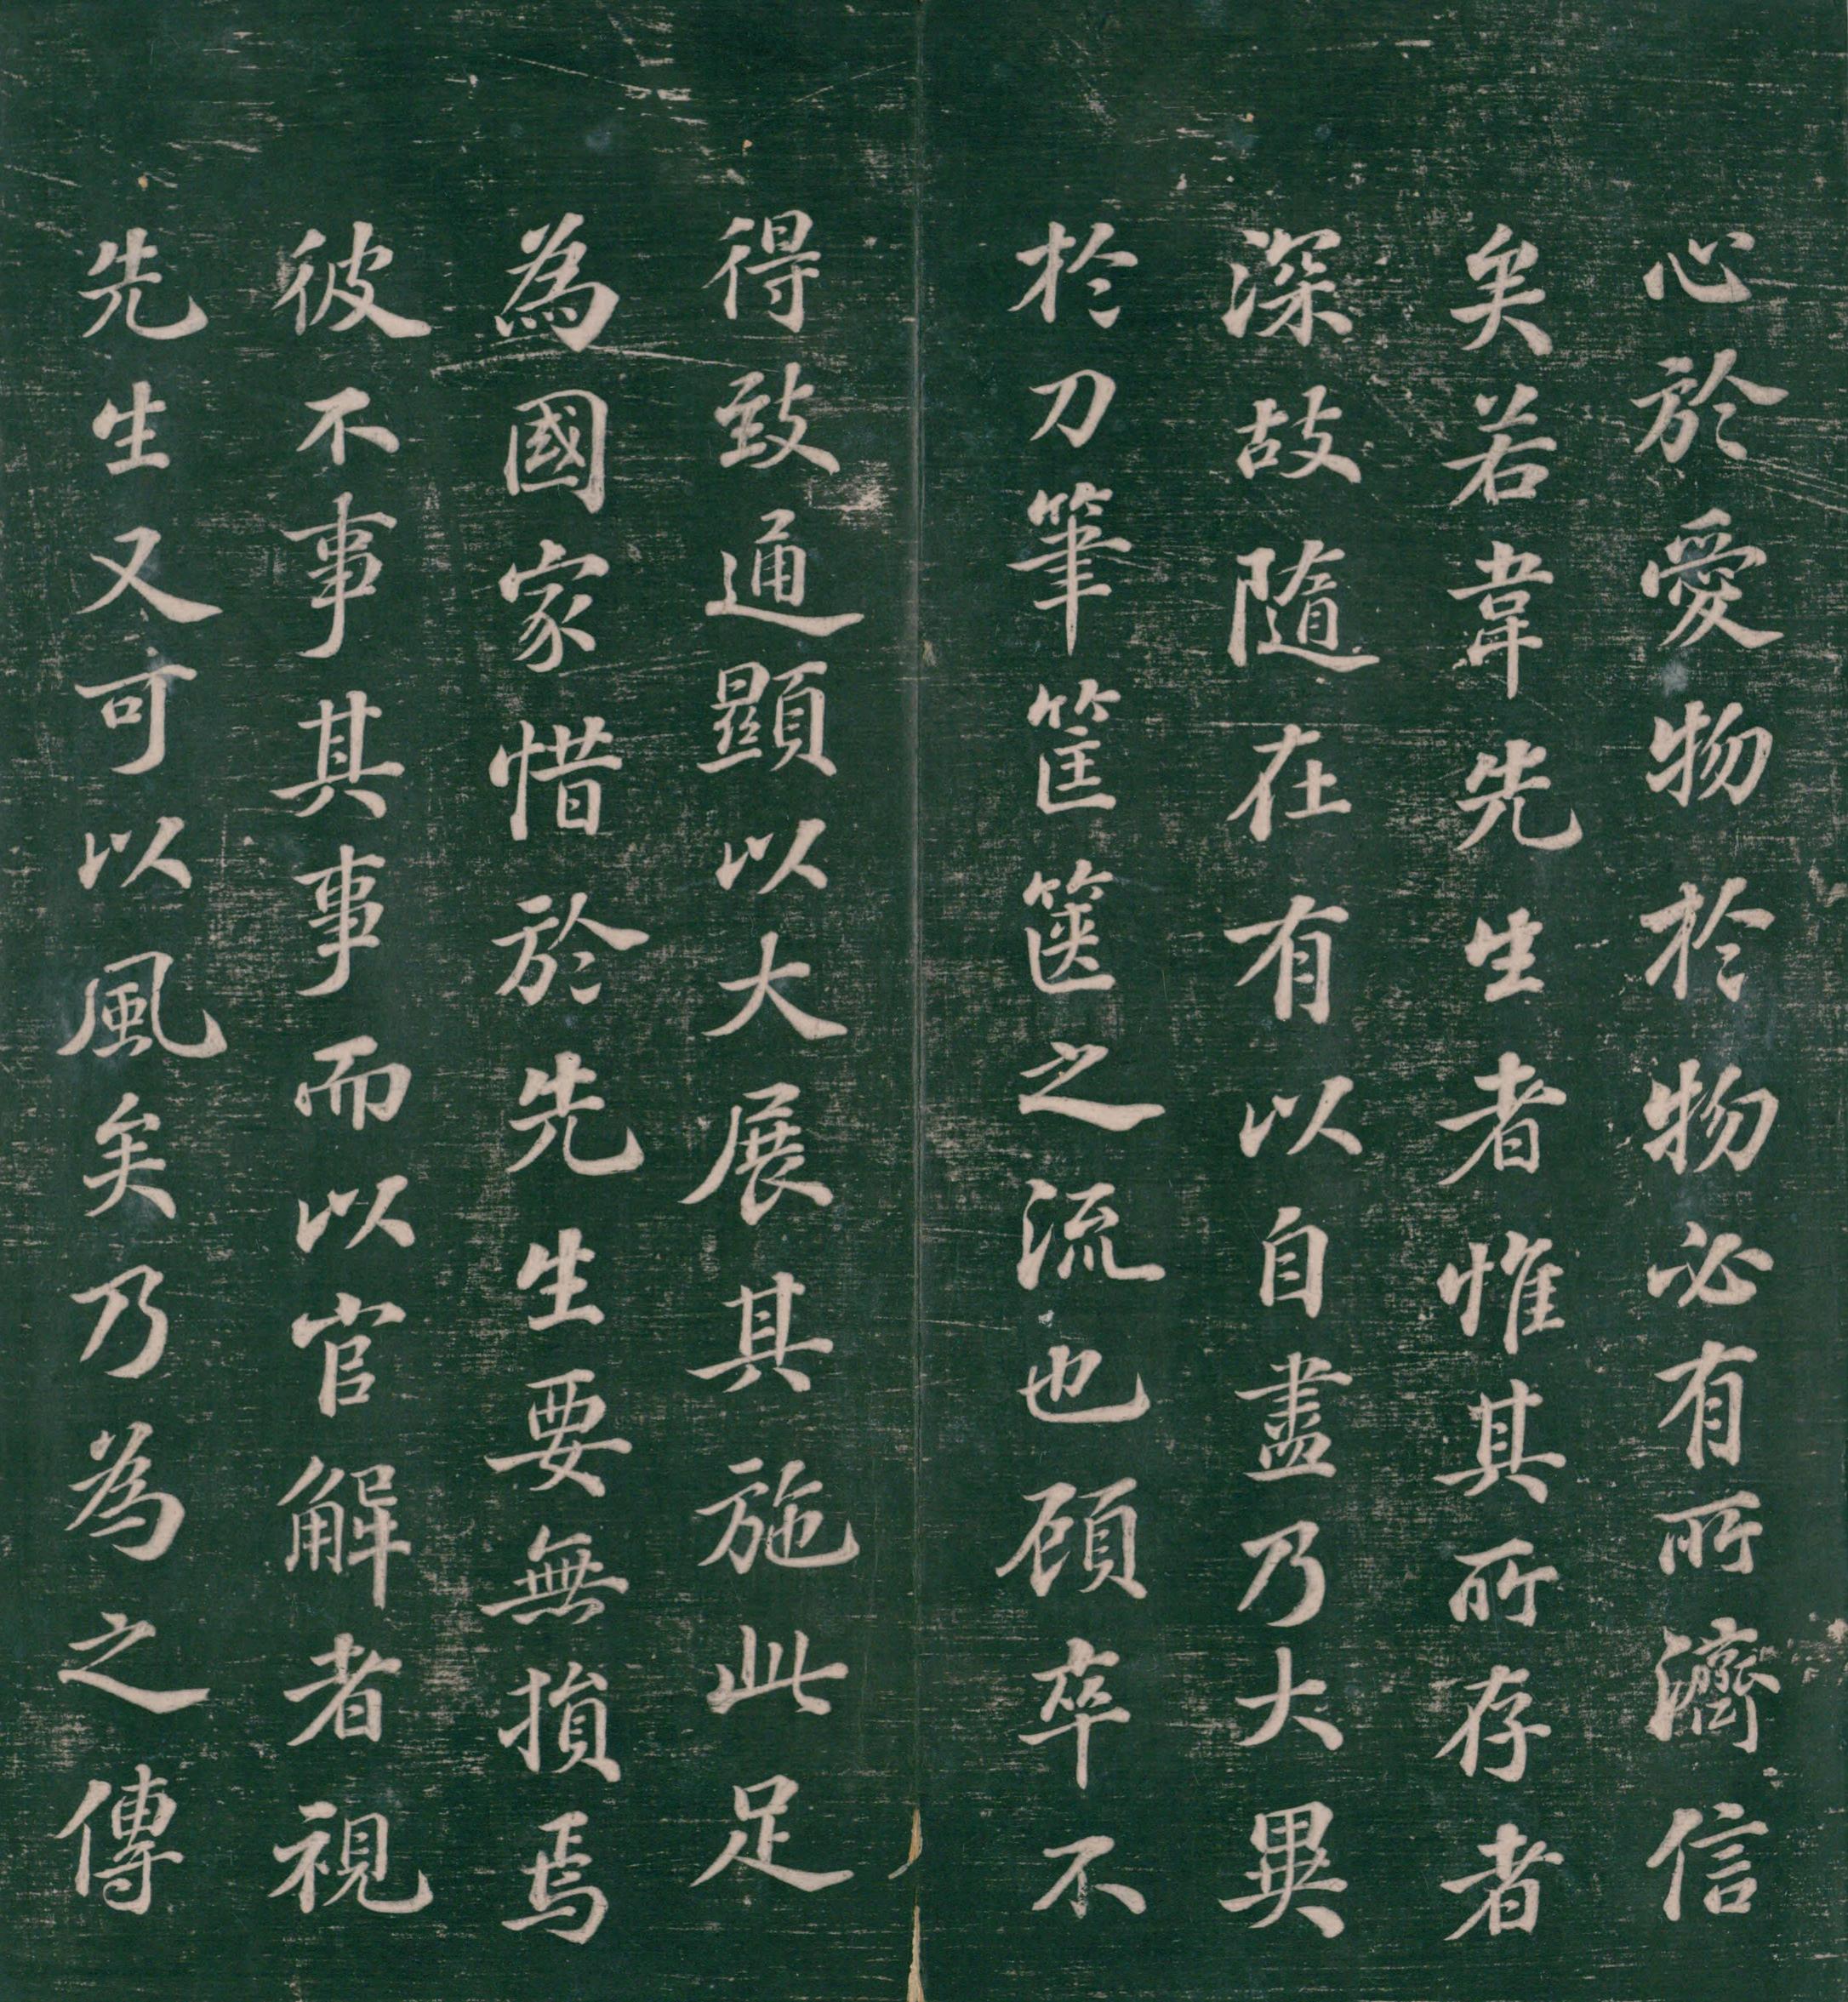 心於愛物於物必有所濟信
矣若韋先生者惟其所存者
深故隨在有以自盡乃大異
於刀筆筐篋之流也顧卒不
得致通顯以大展其施此足
為國家惜於先生要無損焉
彼不事其事而以官解者視
先生又可以風矣乃為之傳